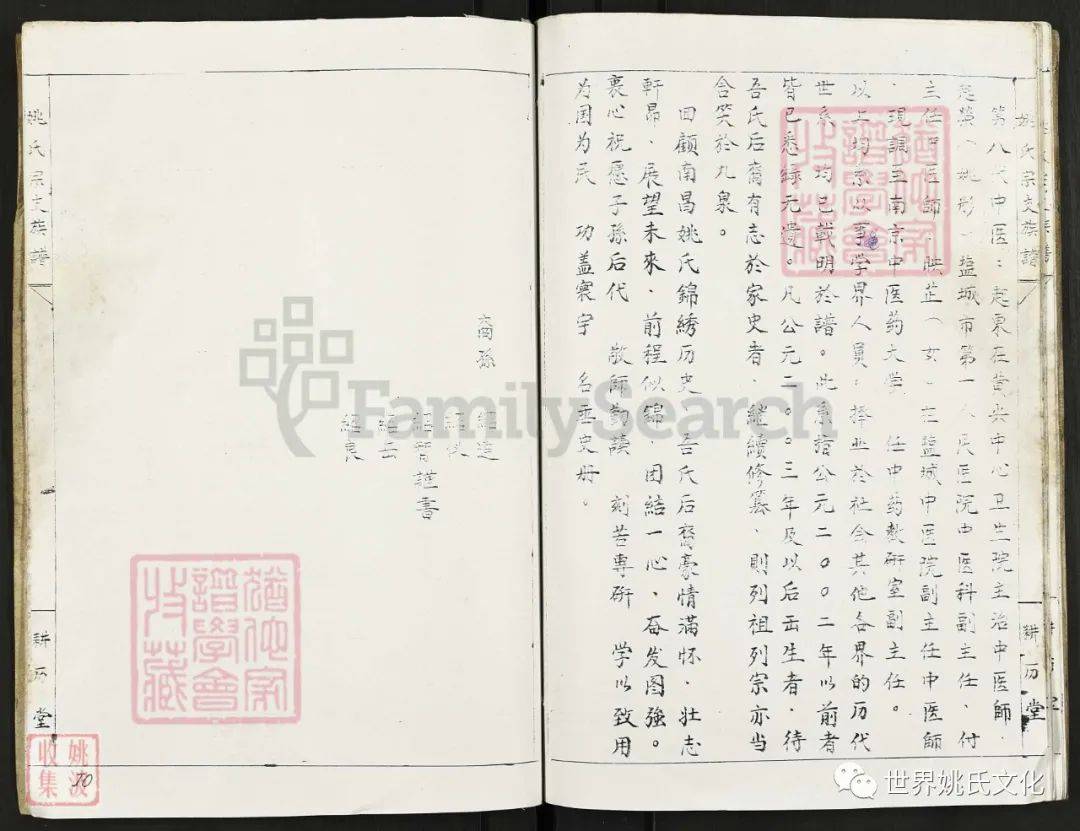 姚氏宗支族譜
耕历堂
第八代中医：志東在黄尖中心卫生院主治中医師．
志第（姚彤）塩城市第一人民医院中医科副主任、付
主任中医師．映芷（女）在塩城中医院副主任中医師
．現調至南京中医药大学　任中药教研室副主任。
以上均系以事学界人員；择业於社会其他各界的历代
世系　均已載明於譜。此系指公元二００二年以前者
皆已悉録无遺。凡公元二００三年及以后出生者．待
吾氏后裔有志於家史者．继續修纂、則列祖列宗亦当
含笑於九泉。
回顧南昌姚氏錦綉历史　吾氏后裔豪情滿怀．壮志
軒昂、展望未來．前程似錦．团結一心、奋发图強。
衷心祝愿子孫后代　敬師勤讀　刻苦專研　学以致用
为国为民　功盖寰宇　名垂史册。
裔孫
謹書
姚氏宗支族譜
耕历堂
10
姚波
收集
收藏
譜學會
FamilySearch
世界姚氏文化